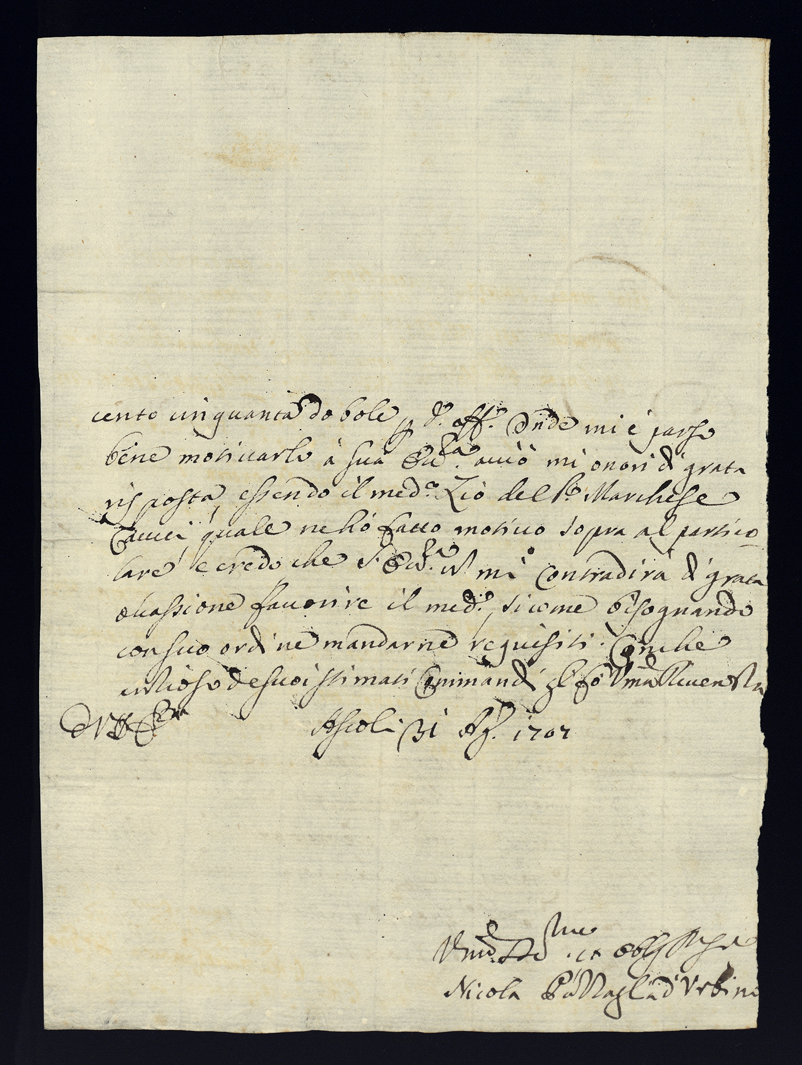 cento cinquanta dobole p d.º off.º Onde mi è parso
bene motivarlo à sua Ecc.za acciò mi onori di grata
risposta essendo il med.º Zio del S.r Marchese
quale ne hò fatto motivo sopra al partico
lare e credo che S. Ecc.za mi contradirà di grata
occassione favorire il med.º sicome bisognando
con suo ordine mandarne requisiti. Con che
de suoi stimati Comandi fò Um.a Riverenza
D V Ecc.za Ascoli 31 Ag.º 1707
Um.º
Nicola Battaglia d'Urbino